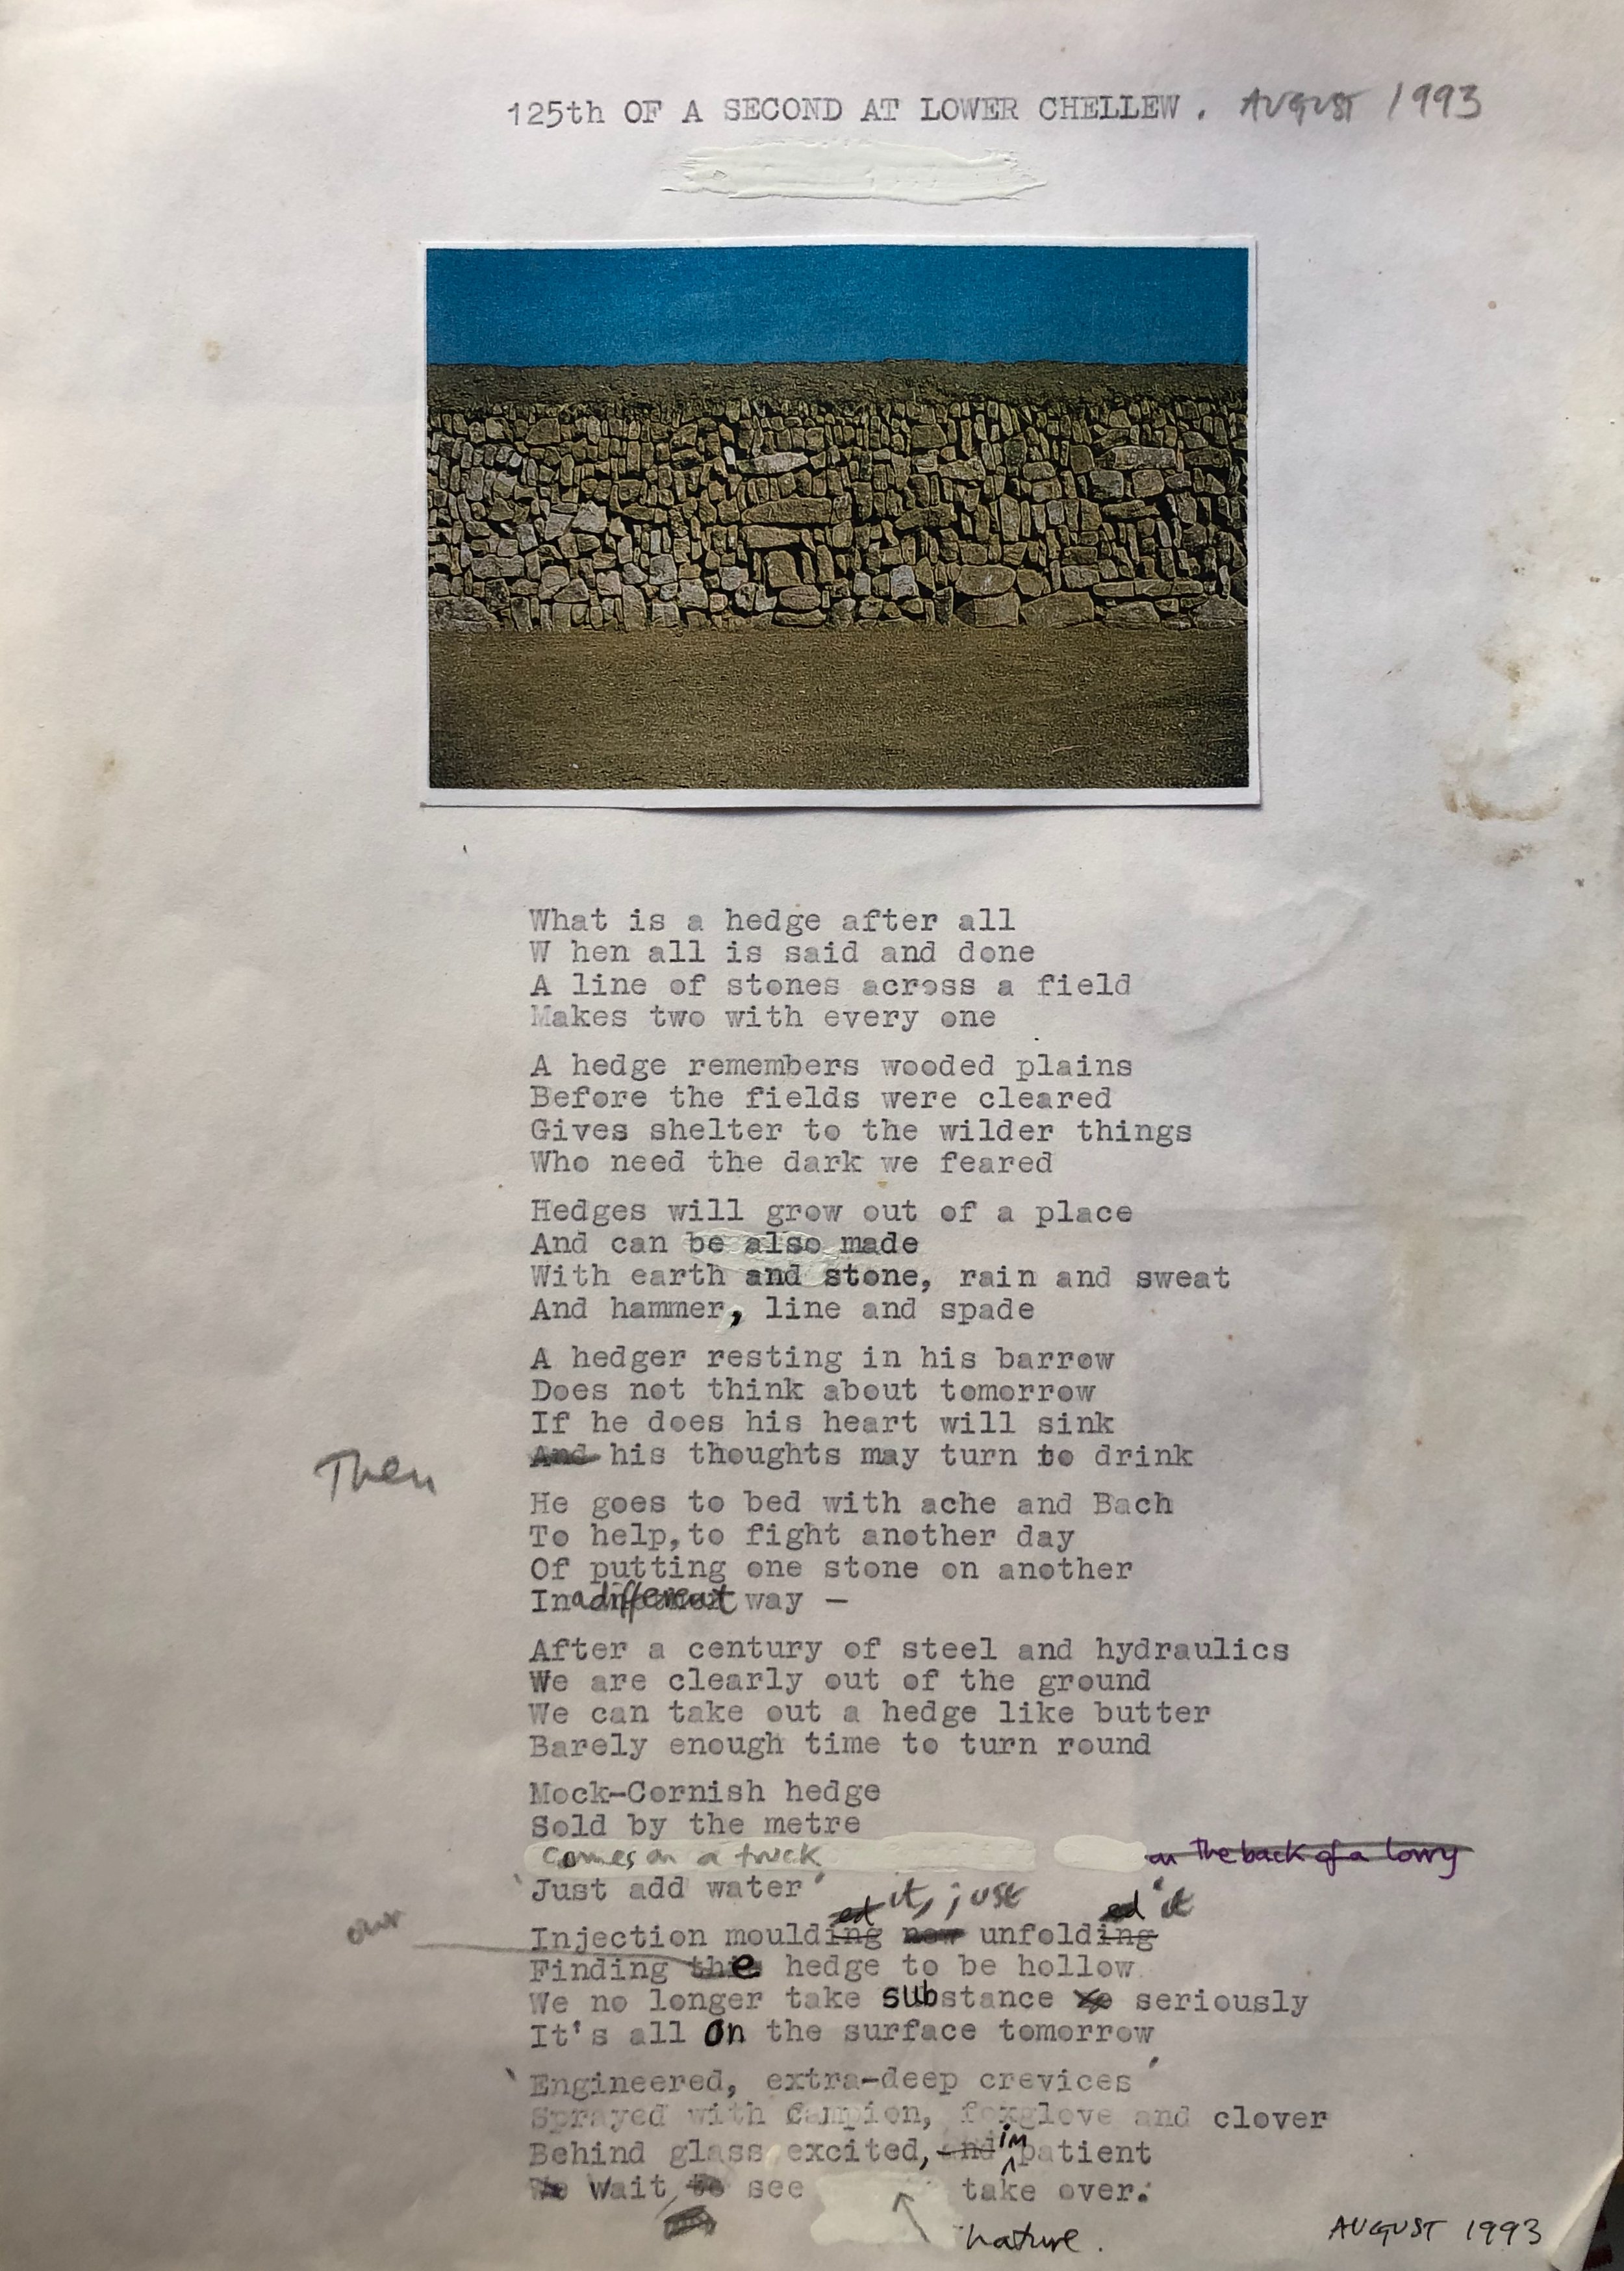 125th OF A SECOND AT LOWER CHELLEW. AUGUST 1993
What is a hedge after all
W hen all is said and done
A line of stones across a field
Makes two with every one
A hedge remembers wooded plains
Before the fields were cleared
Gives shelter to the wilder things
Who need the dark we feared
Hedges will grow out of a place
And can be also made
With earth and stone, rain and sweat
And hammer, line and spade
A hedger resting in his barrow
Does not think about tomorrow
If he does his heart will sink
Then And his thoughts may turn to drink
He goes to bed with ache and Bach
To help, to fight another day
Of putting one stone on another
In a different way —
After a century of steel and hydraulics
We are clearly out of the ground
We can take out a hedge like butter
Barely enough time to turn round
Mock-Cornish hedge
Sold by the metre
Comes on a truck on the back of a lorry
'Just add water'
ed it, just ed it
Injection moulding now unfolding
our
Finding the hedge to be hollow
We no longer take substance so seriously
It's all on the surface tomorrow
'Engineered, extra-deep crevices'
Sprayed with Campion, foxglove and clover
Behind glass excited, and impatient
We wait to see take over.
nature.
AUGUST 1993